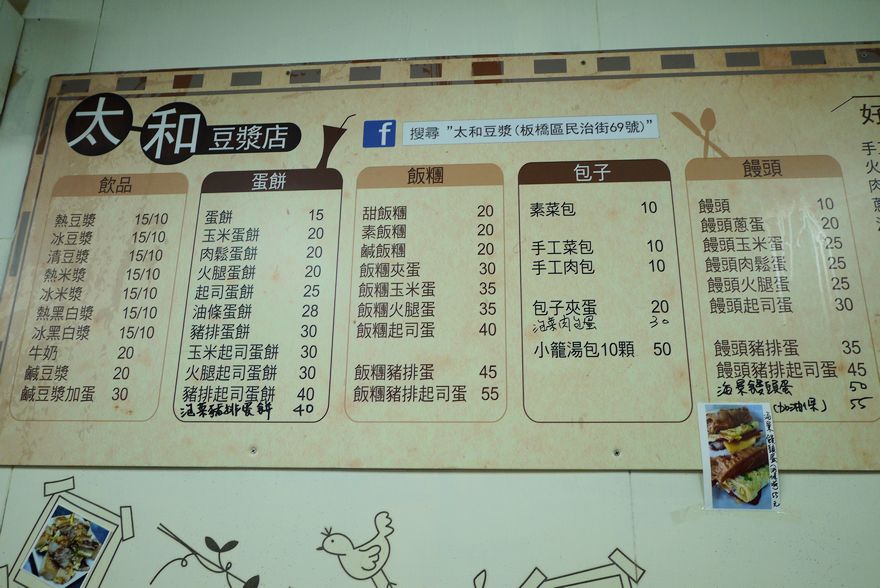 太和豆漿店
搜尋 "太和豆漿(板橋區民治街69號)"
飲品
熱豆漿 15/10
冰豆漿 15/10
清豆漿 15/10
熱米漿 15/10
冰米漿 15/10
熱黑白漿 15/10
冰黑白漿 15/10
牛奶 20
鹹豆漿 20
鹹豆漿加蛋 30
蛋餅
蛋餅 15
玉米蛋餅 20
肉鬆蛋餅 20
火腿蛋餅 20
起司蛋餅 25
油條蛋餅 28
豬排蛋餅 30
玉米起司蛋餅 30
火腿起司蛋餅 30
豬排起司蛋餅 40
泡菜豬排蛋餅 40
飯糰
甜飯糰 20
素飯糰 20
鹹飯糰 20
飯糰夾蛋 30
飯糰玉米蛋 35
飯糰火腿蛋 35
飯糰起司蛋 40
飯糰豬排蛋 45
飯糰豬排起司蛋 55
包子
素菜包 10
手工菜包 10
手工肉包 10
包子夾蛋 20
泡菜肉包蛋 30
小籠湯包10顆 50
饅頭
饅頭 10
饅頭蔥蛋 20
饅頭玉米蛋 25
饅頭肉鬆蛋 25
饅頭火腿蛋 25
饅頭起司蛋 30
饅頭豬排蛋 35
饅頭豬排起司蛋 45
泡菜饅頭蛋 50
55
好
手
火